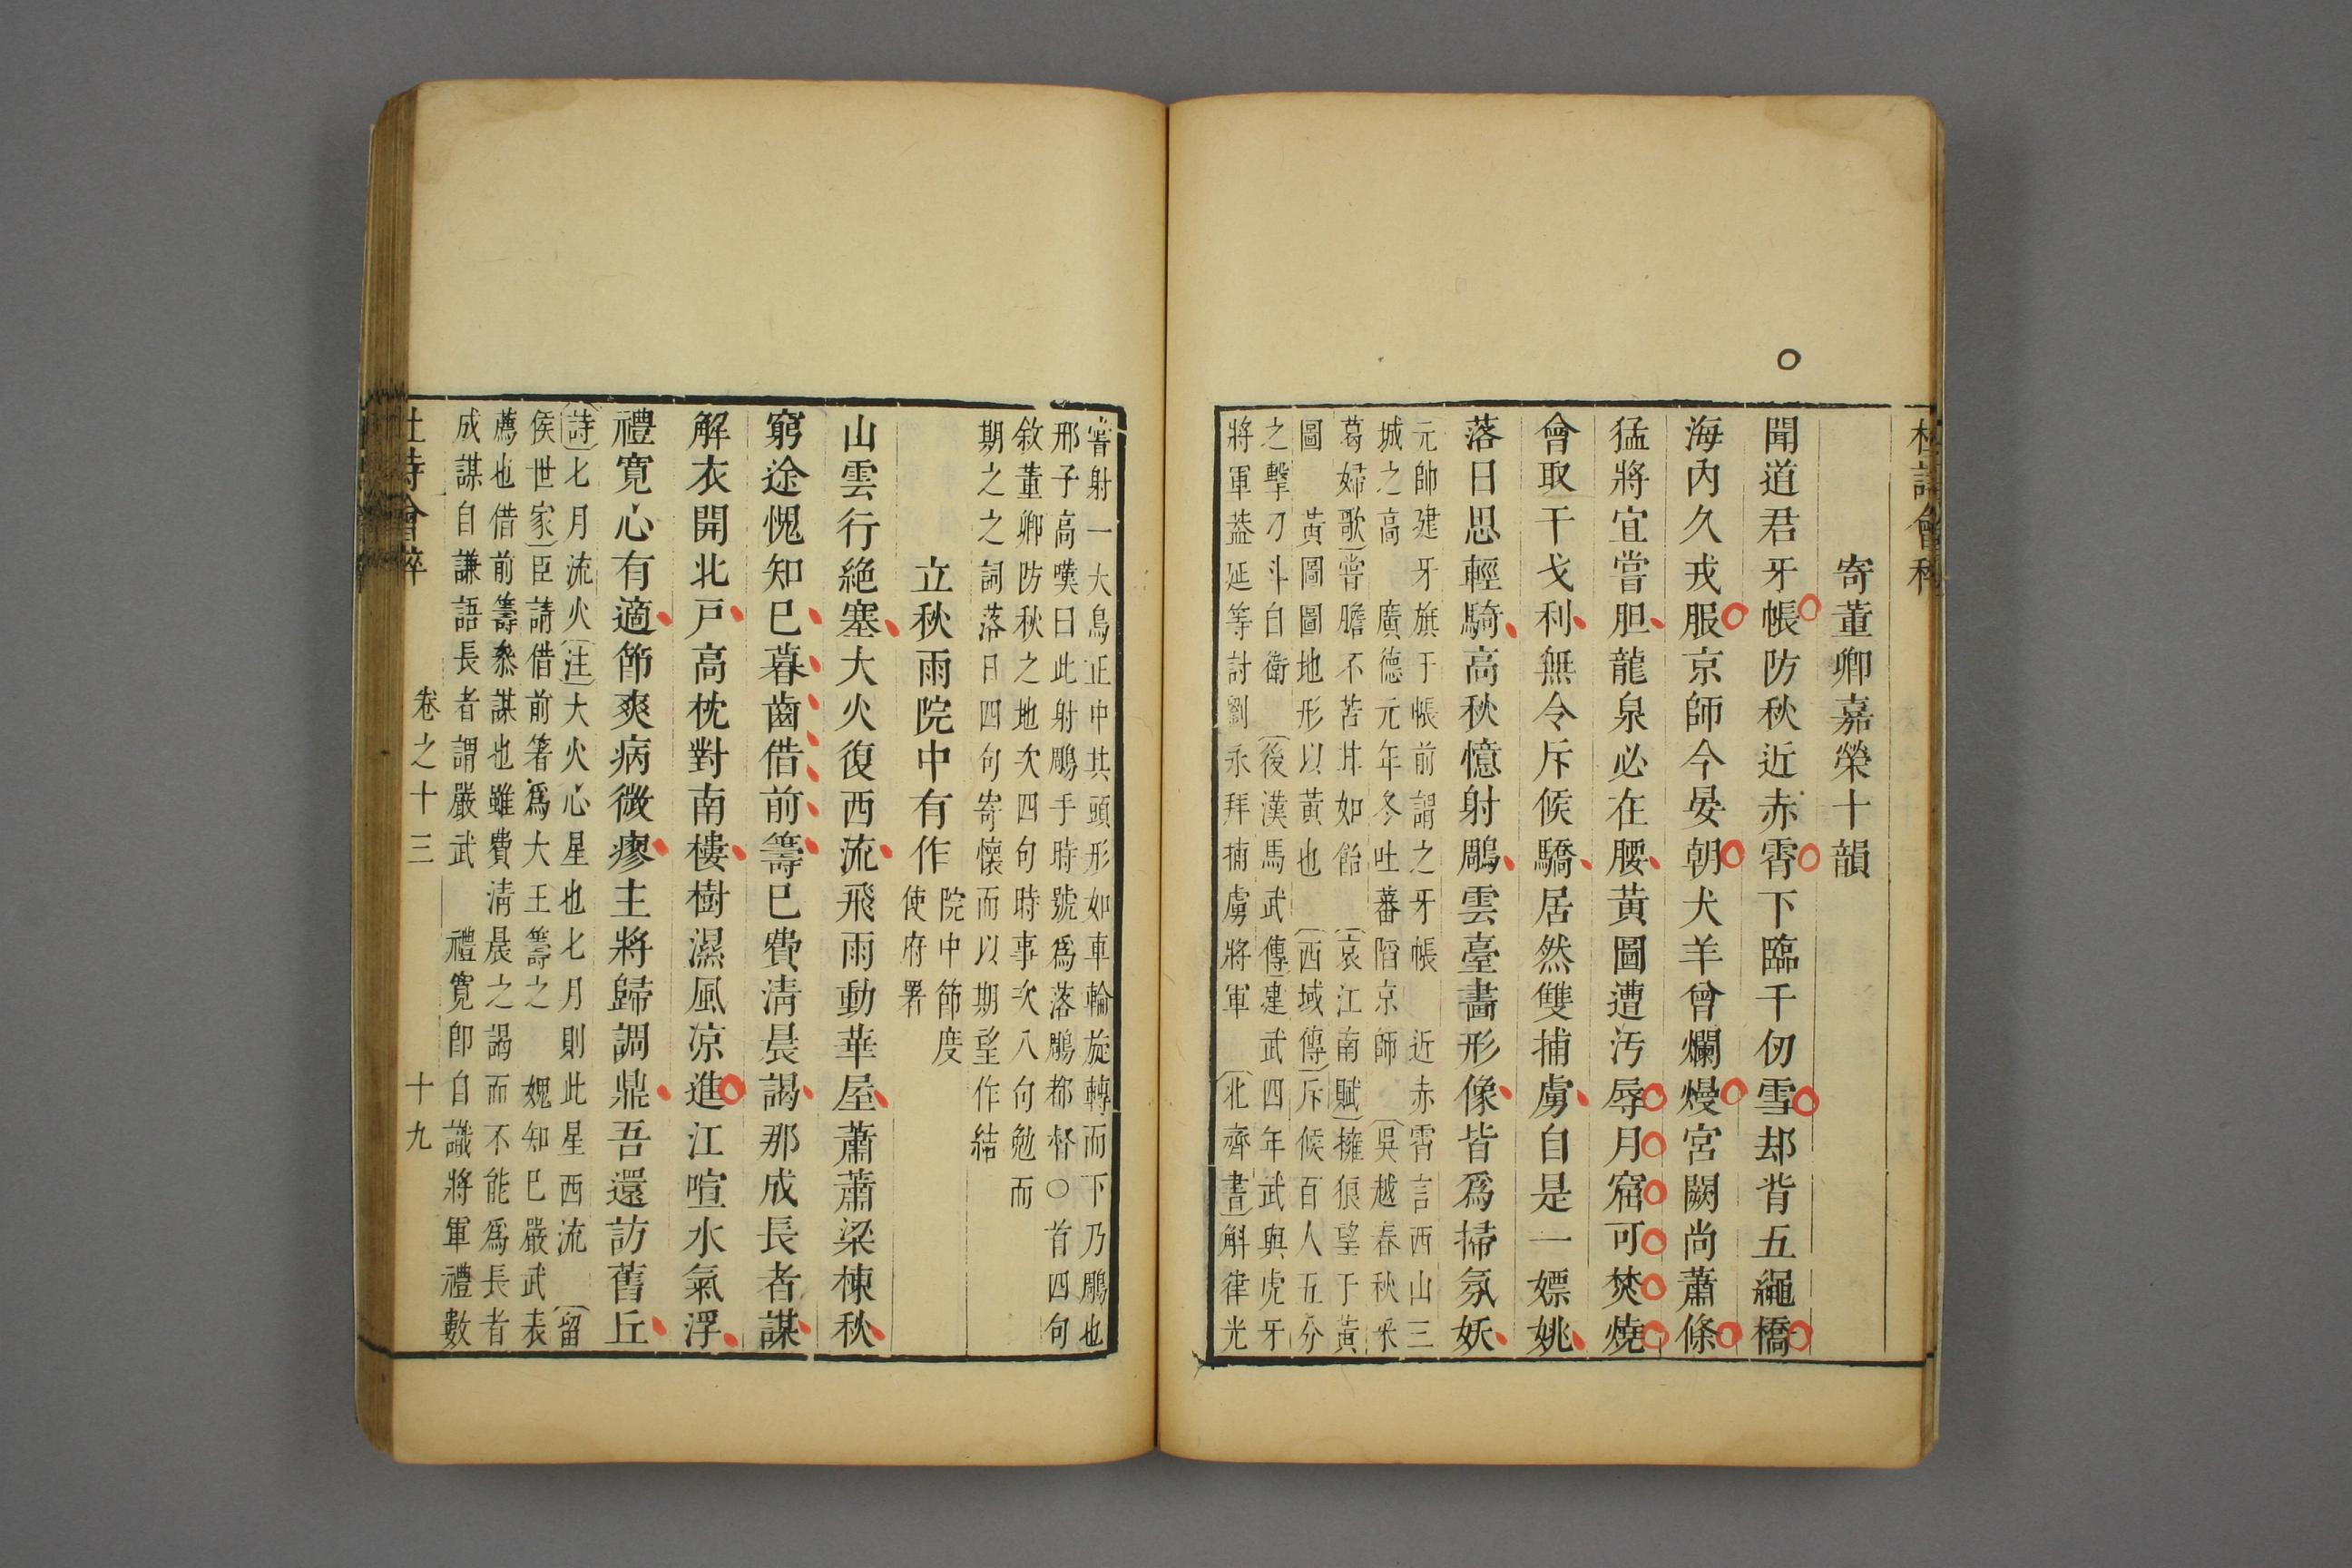 寄董卿嘉榮十韻
聞道君牙帳防秋近赤霄下臨千仞雪却背五繩橋
海內久戎服京師今晏朝犬羊曾爛熳宮闕尚蕭條
猛將宜嘗胆龍泉必在腰黃圖遭汚辱月窟可焚燒
會取干戈利無令斥候驕居然雙捕虜自是一嫖姚
落日思輕騎高秋憶射鵰雲臺畵形像皆爲掃氛妖
元帥建牙旗于帳前謂之牙帳 近赤霄言西山三
城之高 廣德元年冬吐蕃陷京師 吳越春秋采
葛婦歌嘗膽不苦甘如飴 哀江南賦擁狼望于黃
圖 黃圖圖地形以黃也 西域傳斥候百人五分
之擊刀斗自衛 後漢馬武傳建武四年武與虎牙
將軍葢延等討劉永拜捕虜將軍 北齊書斛律光
嘗射一大鳥正中其頭形如車輪旋轉而下乃鵰也
邢子高嘆曰此射鵰手時號爲落鵰都督○首四句
敘董卿防秋之地次四句時事次八句勉而
期之之詞落日四句寄懷而以期望作結
立秋雨院中有作 院中節度
使府署
山雲行絶塞大火復西流飛雨動華屋蕭蕭梁棟秋
窮途愧知巳暮齒借前籌巳費淸晨謁那成長者謀
解衣開北戸高枕對南樓樹濕風凉進江喧水氣浮
禮寬心有適節爽病微瘳主將歸調鼎吾還訪舊丘
詩七月流火注大火心星也七月則此星西流 留
侯世家臣請借前箸爲大王籌之 媿知巳嚴武表
薦也借前籌叅謀也雖費淸晨之謁而不能爲長者
成謀自謙語長者謂嚴武 禮寬卽自識將軍禮數
卷之十三 十九